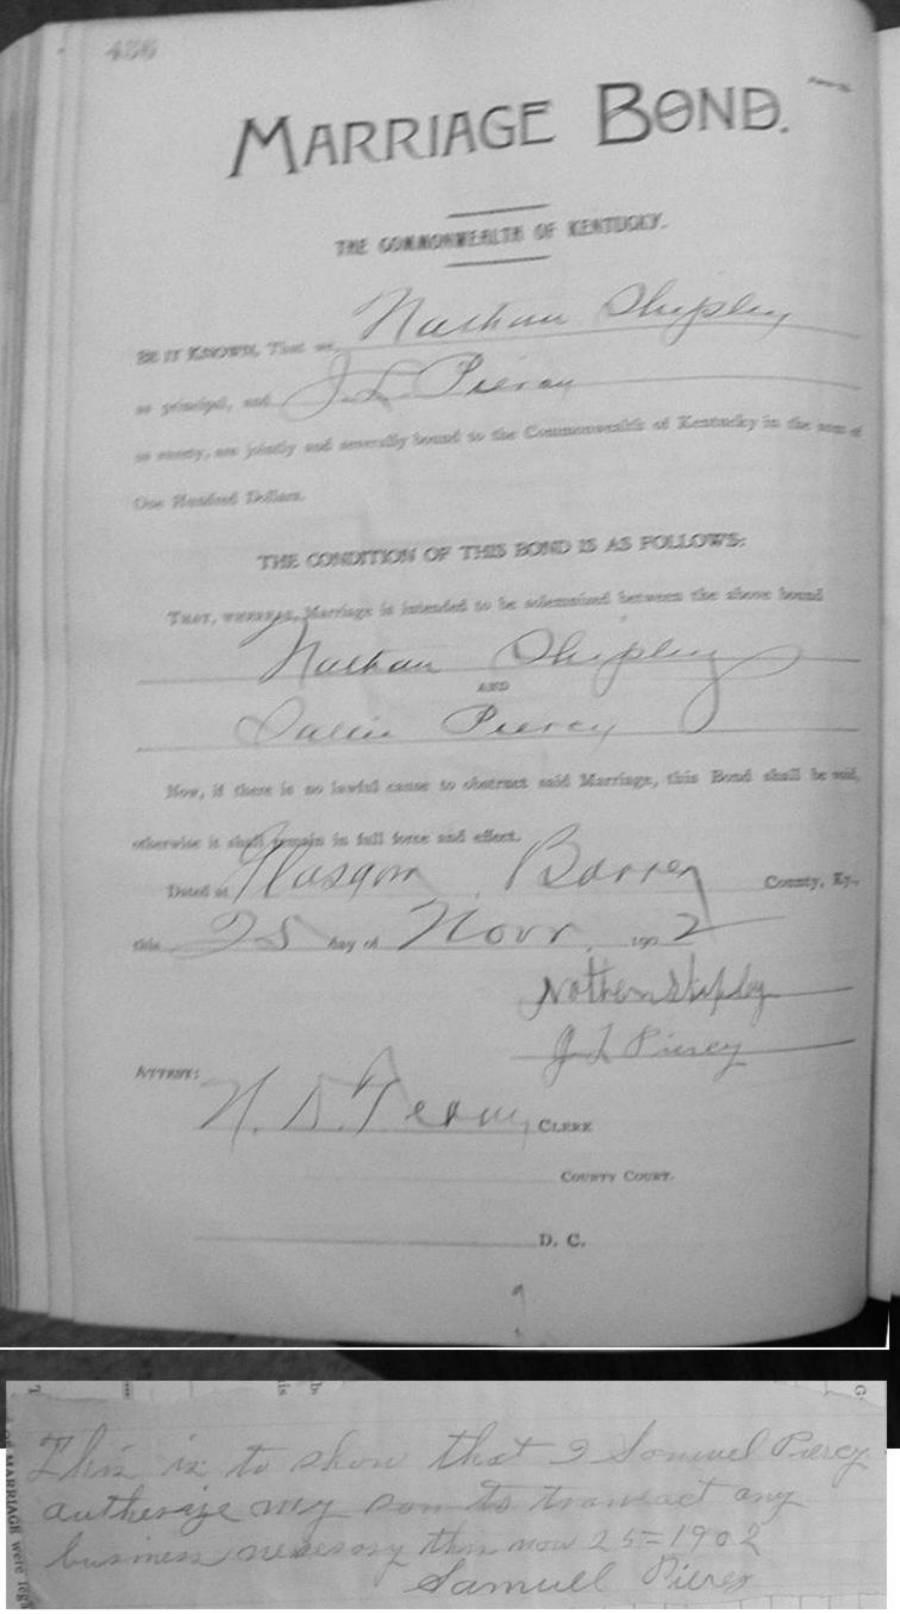 456
MARRIAGE BOND.
THE COMMONWEALTH OF KENTUCKY.
BE IT KNOWN, That we, Nathan Shipley
as principal, and J. L. Piercy
as surety, are jointly and severally bound to the Commonwealth of Kentucky in the sum of
One Hundred Dollars.
THE CONDITION OF THIS BOND IS AS FOLLOWS:
THAT, WHEREAS, Marriage is intended to be solemnized between the above bound
Nathan Shipley
AND
Sallie Piercy
Now, if there is no lawful cause to obstruct said Marriage, this Bond shall be void,
otherwise it shall remain in full force and effect.
Dated at Glasgow Barren County, Ky.,
this 25 day of Novr. 1902
Nathen Shipley
J L Piercy
ATTEST:
CLERK
COUNTY COURT.
D. C.
This is to show that I Samuel Piercy
autherize my son to transact any
business nesesary this nov 25=1902
Samuel Piercy
MARRIAGE were